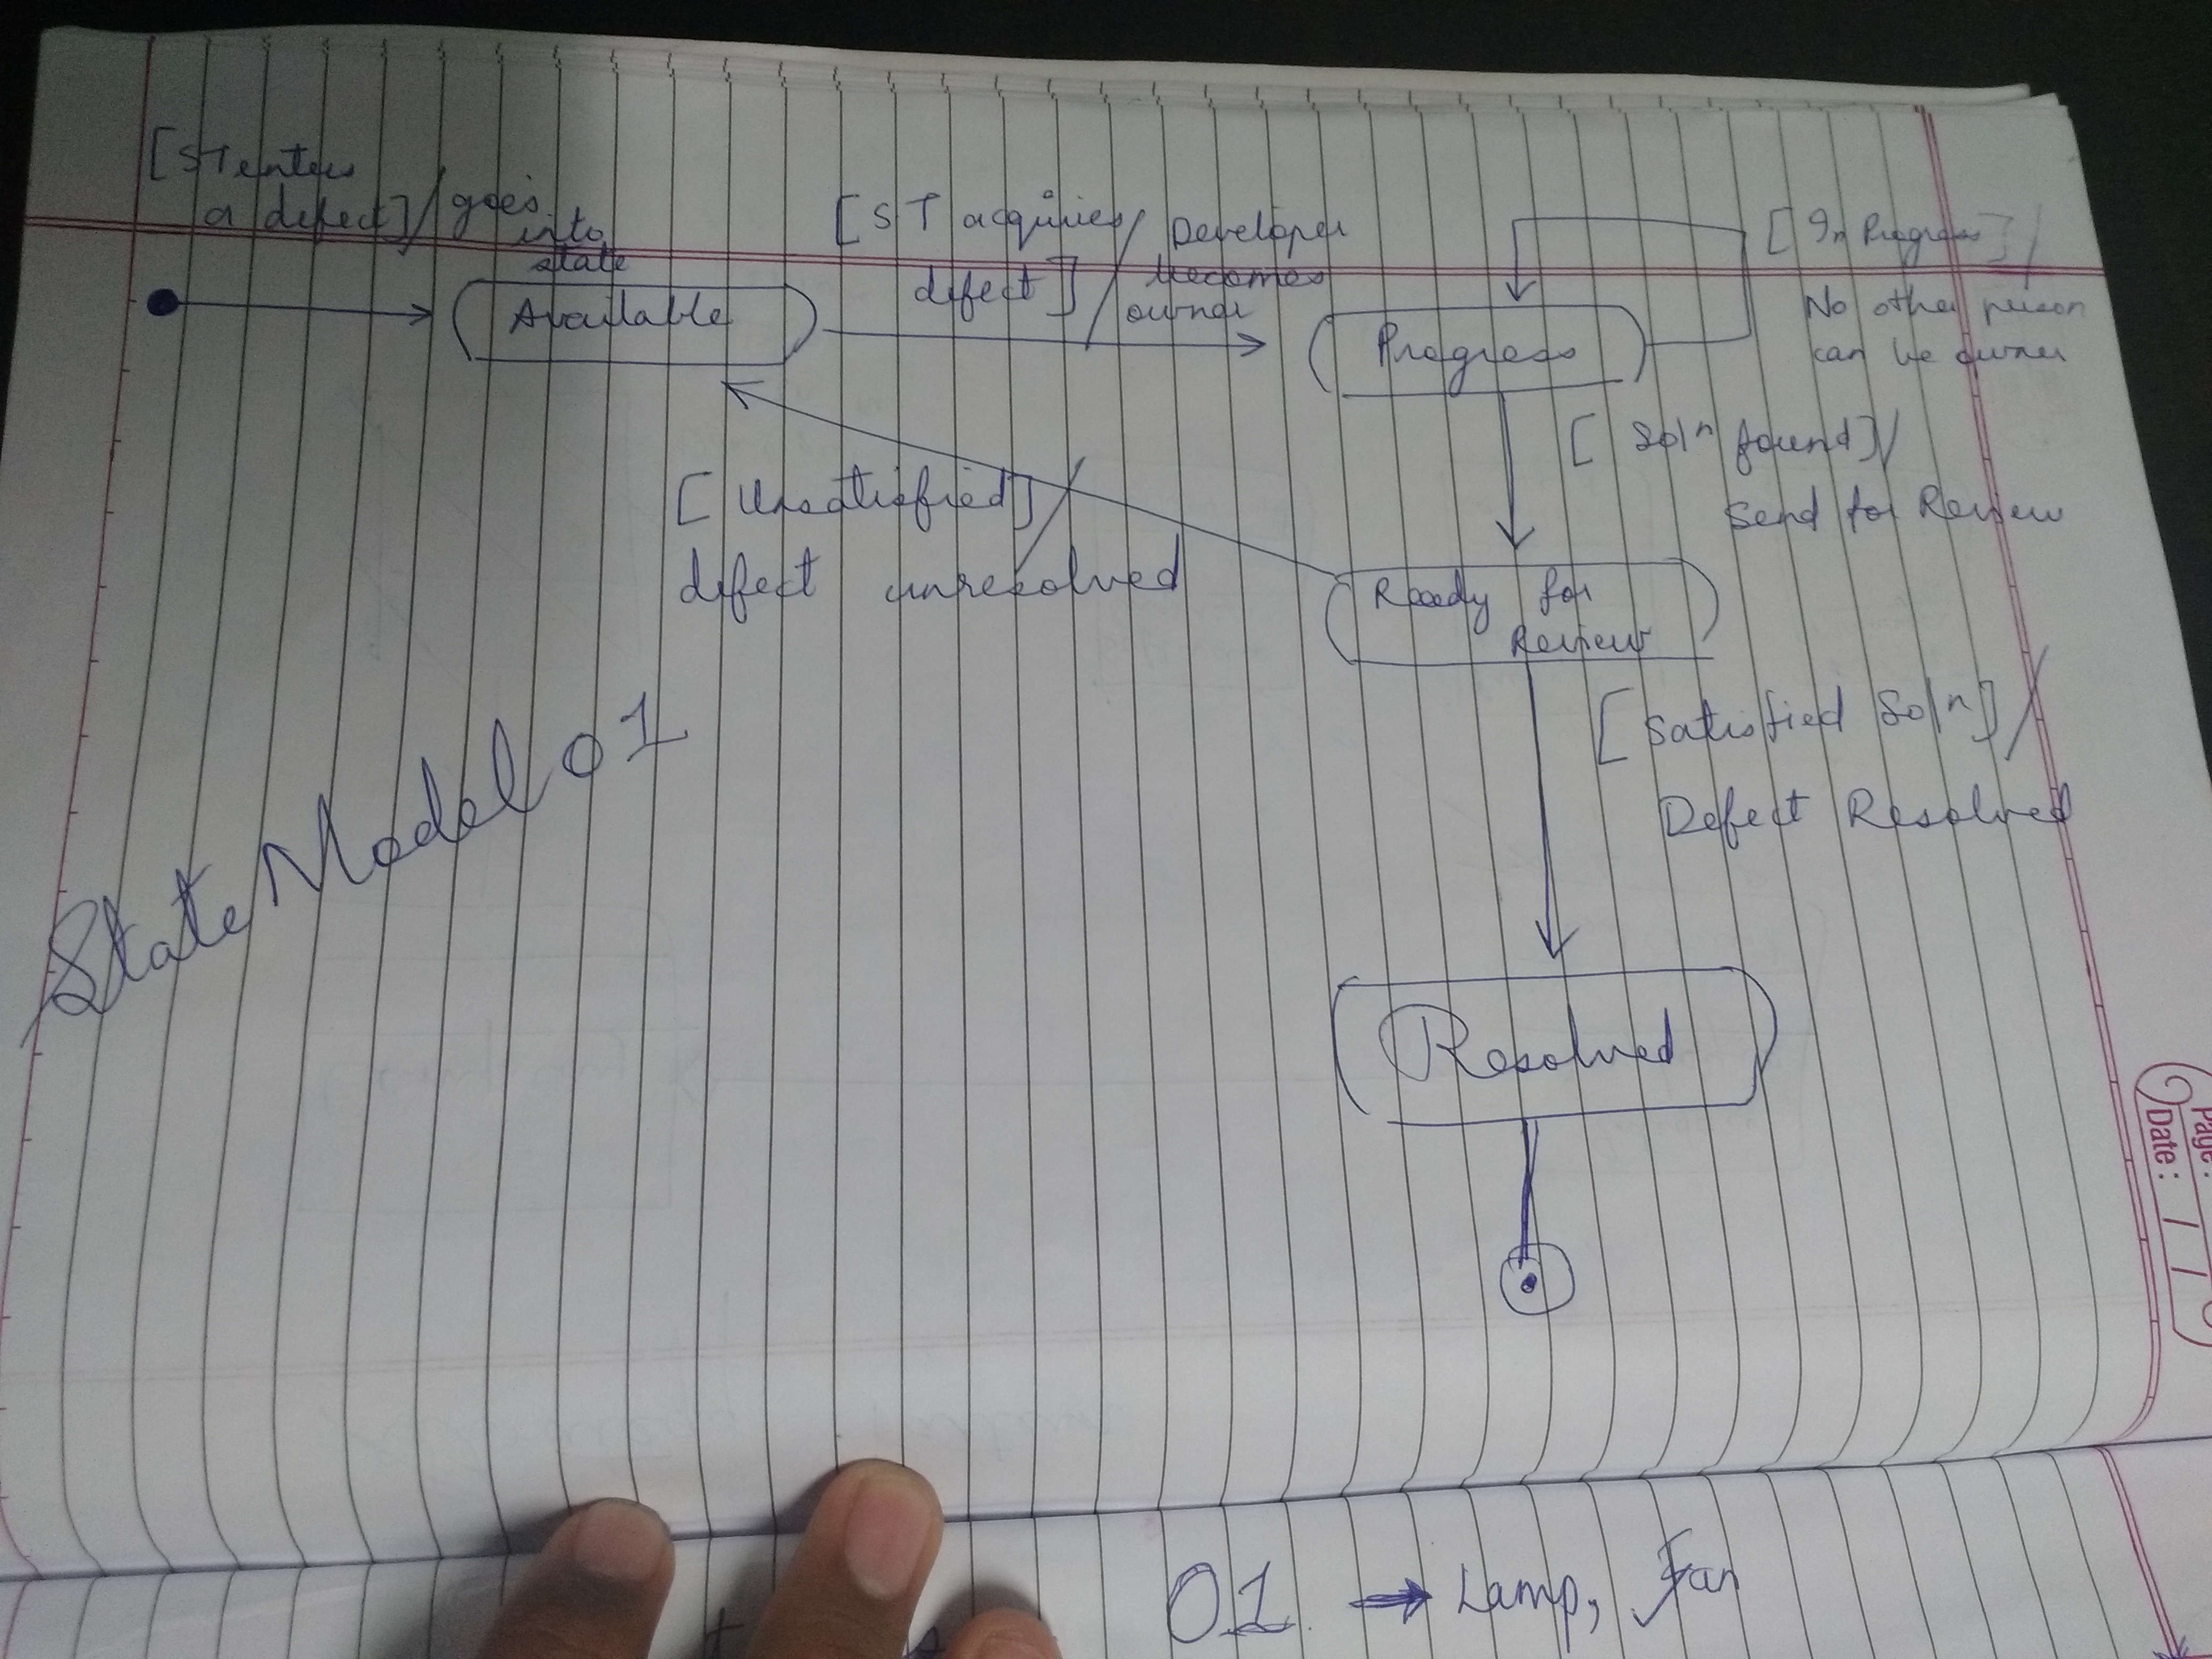 [ST enters
a defect] / goes
into
state
Available
[ST acquires
defect] / Developer
becomes
owner
Progress
[In Progress] /
No other person
can be owner
[Solⁿ found] /
Send for Review
[Unsatisfied] /
defect unresolved
Ready for
Review
[Satisfied Solⁿ] /
Defect Resolved
State Model 01
Resolved
Page:
Date: / /
01 → Lamp, Fan